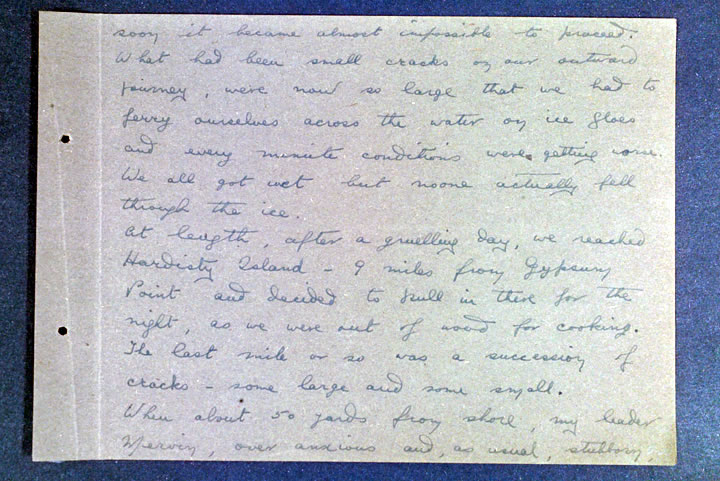 soon it became almost impossible to proceed.
What had been small cracks on our outward
journey, were now so large that we had to
ferry ourselves across the water on ice floes
and every minute conditions were getting worse.
We all got wet but noone actually fell
through the ice.
At length, after a gruelling day, we reached
Hardisty Island - 9 miles from Gypsum
Point and decided to pull in there for the
night, as we were out of wood for cooking.
The last mile or so was a succession of
cracks - some large and some small.
When about 50 yards from shore, my leader
over anxious and, as usual, stubborn,